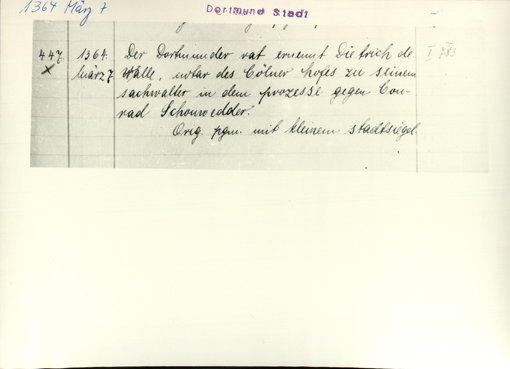 1364 März 7
Dortmund Stadt
447. 1364. Der Dortmunder rat ernennt Dietrich de
X März 7. Walle, notar des Cölner hofes zu seinem
sachwalter in dem prozesse gegen Con-
rad Schouwedder.
Orig. pgm. mit kleinem stadtsiegel